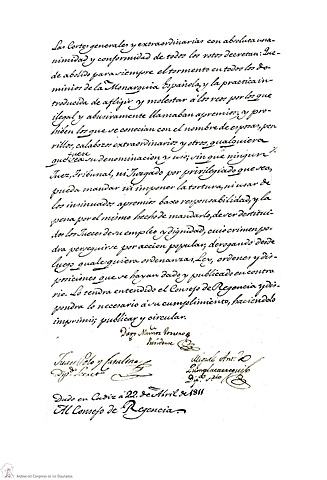 Las Cortes generales y extraordinarias con absoluta una-
nimidad y conformidad de todos los votos decretan: Que-
de abolido para siempre el tormento en todos los do-
minios de la Monarquia Española, y la practica in-
troducida de afligir y molestar á los reos por los que
ilegal y abusivamente llamaban apremios; y pro-
hiben los que se conocian con el nombre de esposas, per-
rillos, calabozos extraordinarios y otros, qualquiera
que fuese su denominacion y uso; sin que ningun
Juez, Tribunal, ni Juzgado por privilegiado que sea,
pueda mandar ni imponer la tortura, ni usar de
los insinuados apremios baxo responsabilidad, y la
pena por el mismo hecho de mandarlo, de ser destitui-
dos los Jueces de su empleo y dignidad, cuio crimen po-
dra perseguirse por accion popular, derogando desde
luego qualesquiera ordenanzas, Ley, ordenes y dis-
posiciones que se hayan dado y publicado en contra-
rio. Lo tendra entendido el Consejo de Regencia y dis-
pondra lo necesario á su cumplimiento, haciendolo
imprimir, publicar y circular.
Presidente
Juan Polo y Catalina
Dip.º Secret.º
Miguel Ant.º de
Zumalacarregui
Dip.º Srio
Dado en Cadiz á 22. de Abril de 1811
Al Consejo de Regencia.
Archivo del Congreso de los Diputados.